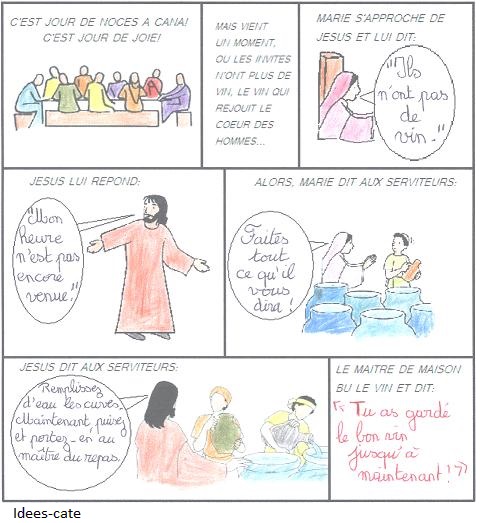 C'EST JOUR DE NOCES A CANA!
C'EST JOUR DE JOIE!
MAIS VIENT
UN MOMENT,
OU LES INVITES
N'ONT PLUS DE
VIN, LE VIN QUI
REJOUIT LE
COEUR DES
HOMMES...
MARIE S'APPROCHE DE
JESUS ET LUI DIT:
"Ils
n'ont pas
de
vin."
JESUS LUI REPOND:
"Mon
heure
n'est pas
encore
venue."
ALORS, MARIE DIT AUX SERVITEURS:
Faites
tout
ce qu'il
vous
dira!
JESUS DIT AUX SERVITEURS:
Remplissez
d'eau les cuves.
Maintenant, puisez
et portez-en au
maître du repas.
LE MAITRE DE MAISON
BU LE VIN ET DIT:
"Tu as gardé
le bon vin
jusqu'à
maintenant!"
Idees-cate